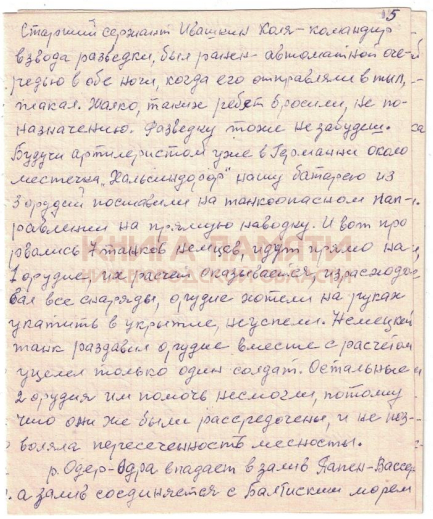 5
Старший сержант Ивашкин Коля - командир
взвода разведки, был ранен - автоматной оче-
редью в обе ноги, когда его отправляли в тыл,
плакал. Жалко, таких ребят бросили, не по-
назначению. Разведку тоже не забудем.
Будучи артилеристом уже в Германии около
местечка „Хальмндорф" нашу батарею из
3 орудий поставили на танкоопасном нап-
равлении на прямую наводку. И вот про
рвались 7 танков немцев, идут прямо на
1 орудие, их расчет оказывается израсходо
вал все снаряды, орудие хотели на руках
укатить в укрытие, неуспели. Немецкий
танк раздавил орудие вместе с расчетом
уцелел только один солдат. Остальные
2 орудия им помочь несмогли, потому
что они же были рассредочены, и не поз-
воляла пересеченность месности.
р. Одер-Одра впадает в залив Папен-Вассер
а залив соединяется с Балтиским морем
КНИГА ПАМЯТИ